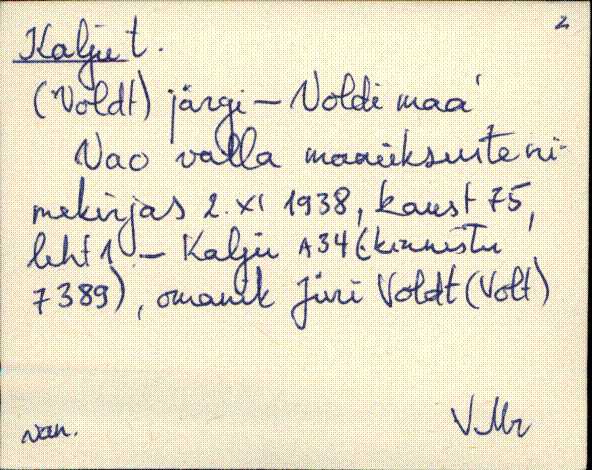 2
Kalju t.
(Voldt) järgi – Voldi maa'
Vao valla maaüksuste ni-
mekirjas 2. XI 1938, kaust 75,
leht 1 – Kalju A34 (kinnistu
7389), omanik Jüri Voldt (Volt)
V. Mr
van.